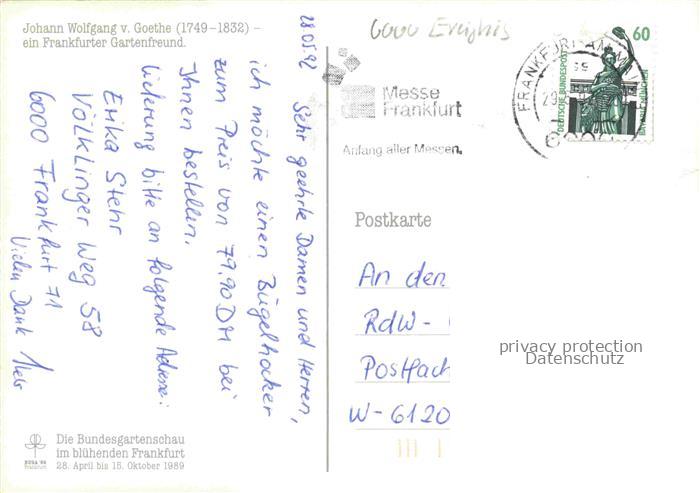 Johann Wolfgang v. Goethe (1749–1832) –
ein Frankfurter Gartenfreund.
28.05.92
Sehr geehrte Damen und Herren,
ich möchte einen Bügelhocker
zum Preis von 79,90 DM bei
Ihnen bestellen.
Lieferung bitte an folgende Adresse:
Erika Stehr
Völklinger Weg 58
6000 Frankfurt 71
Vielen Dank
Die Bundesgartenschau
im blühenden Frankfurt
28. April bis 15. Oktober 1989
BUGA '89
Frankfurt
6000 Ereignis
Messe
Frankfurt
Anfang aller Messen.
FRANKFURT AM MAIN
60
DEUTSCHE BUNDESPOST
BAVARIA MÜNCHEN
Postkarte
An den
RdW-
Postfach
W-6120
privacy protection
Datenschutz